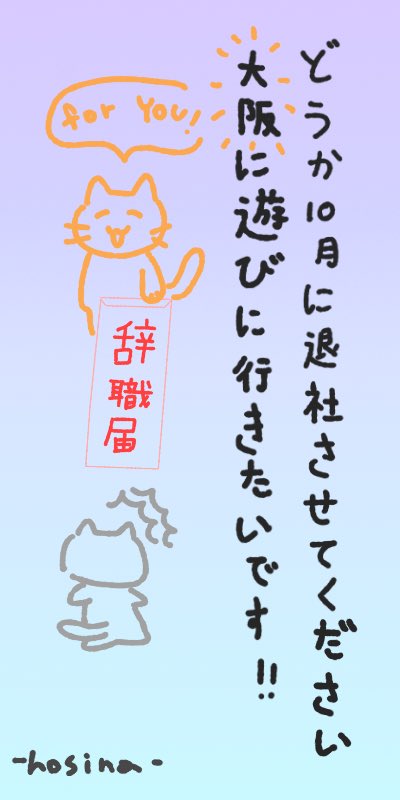 どうか10月に退社させてください
大阪に遊びに行きたいです!!
for YOU!
辞職届
-hosina-